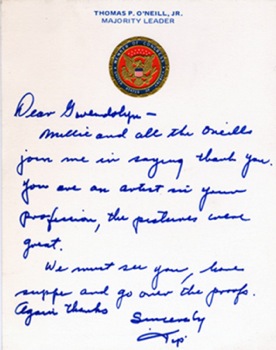 THOMAS P. O'NEILL, JR.
MAJORITY LEADER
Dear Gwendolyn —
Millie and all the O'neills
join me in saying thank you.
You are an artist in your
profession, the pictures were
great.
We must see you, have
suppe and go over the proofs.
Again thanks
Sincerely
Tip